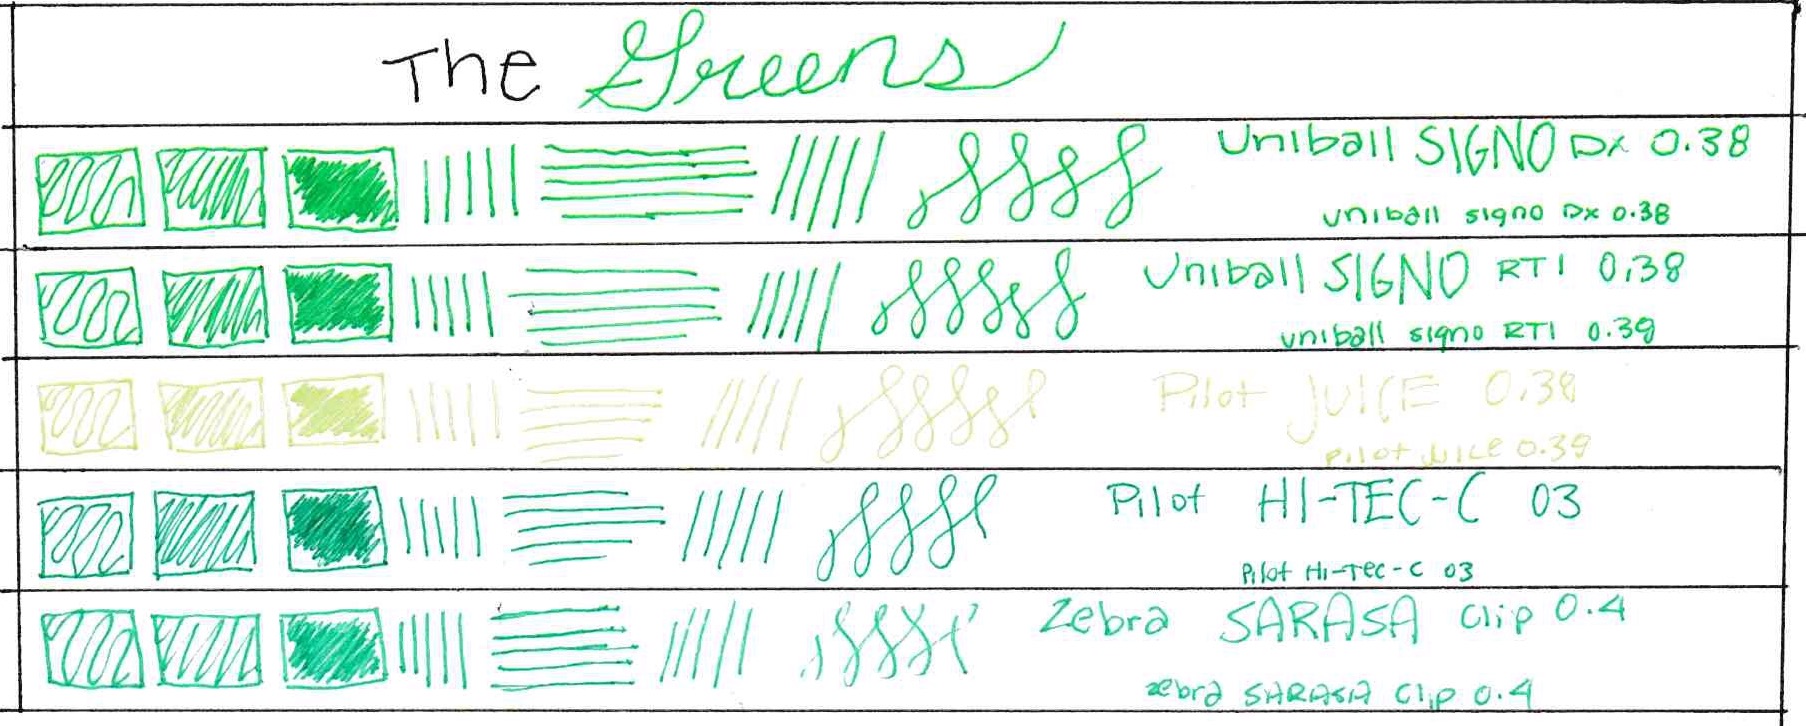 The Greens
Uniball SIGNO Dx 0.38
uniball signo Dx 0.38
Uniball SIGNO RT1 0.38
uniball signo RT1 0.38
Pilot JUICE 0.38
pilot juice 0.38
Pilot HI-TEC-C 03
Pilot Hi-Tec-C 03
Zebra SARASA Clip 0.4
zebra SARASA Clip 0.4